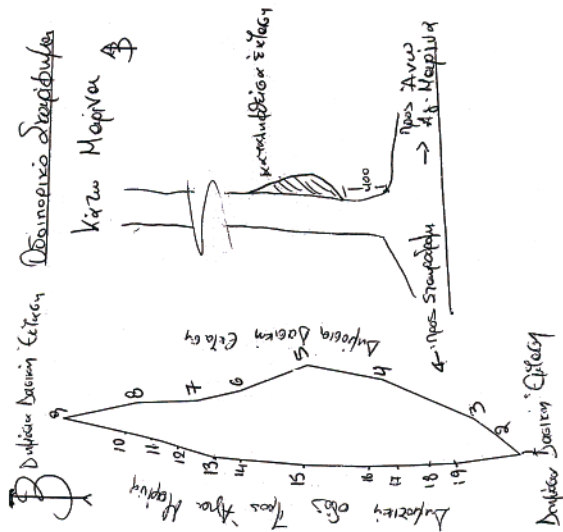 Οδοιπορικό Σκαρίφημα
Κάτω Μαρίνα
Β
καταληφθείσα έκταση
400
← προς Σταυράδρομι
Προς Άνω
→ Αγ. Μαρίνα
Β
Δημόσια Δασική Έκταση
9
8
7
6
5
4
3
2
1
10
11
12
13
14
15
16
17
18
19
Δημόσια Δασική Έκταση
Δημοτική οδός Προς Άγια Μαρίνα
Δημόσια Δασική Έκταση